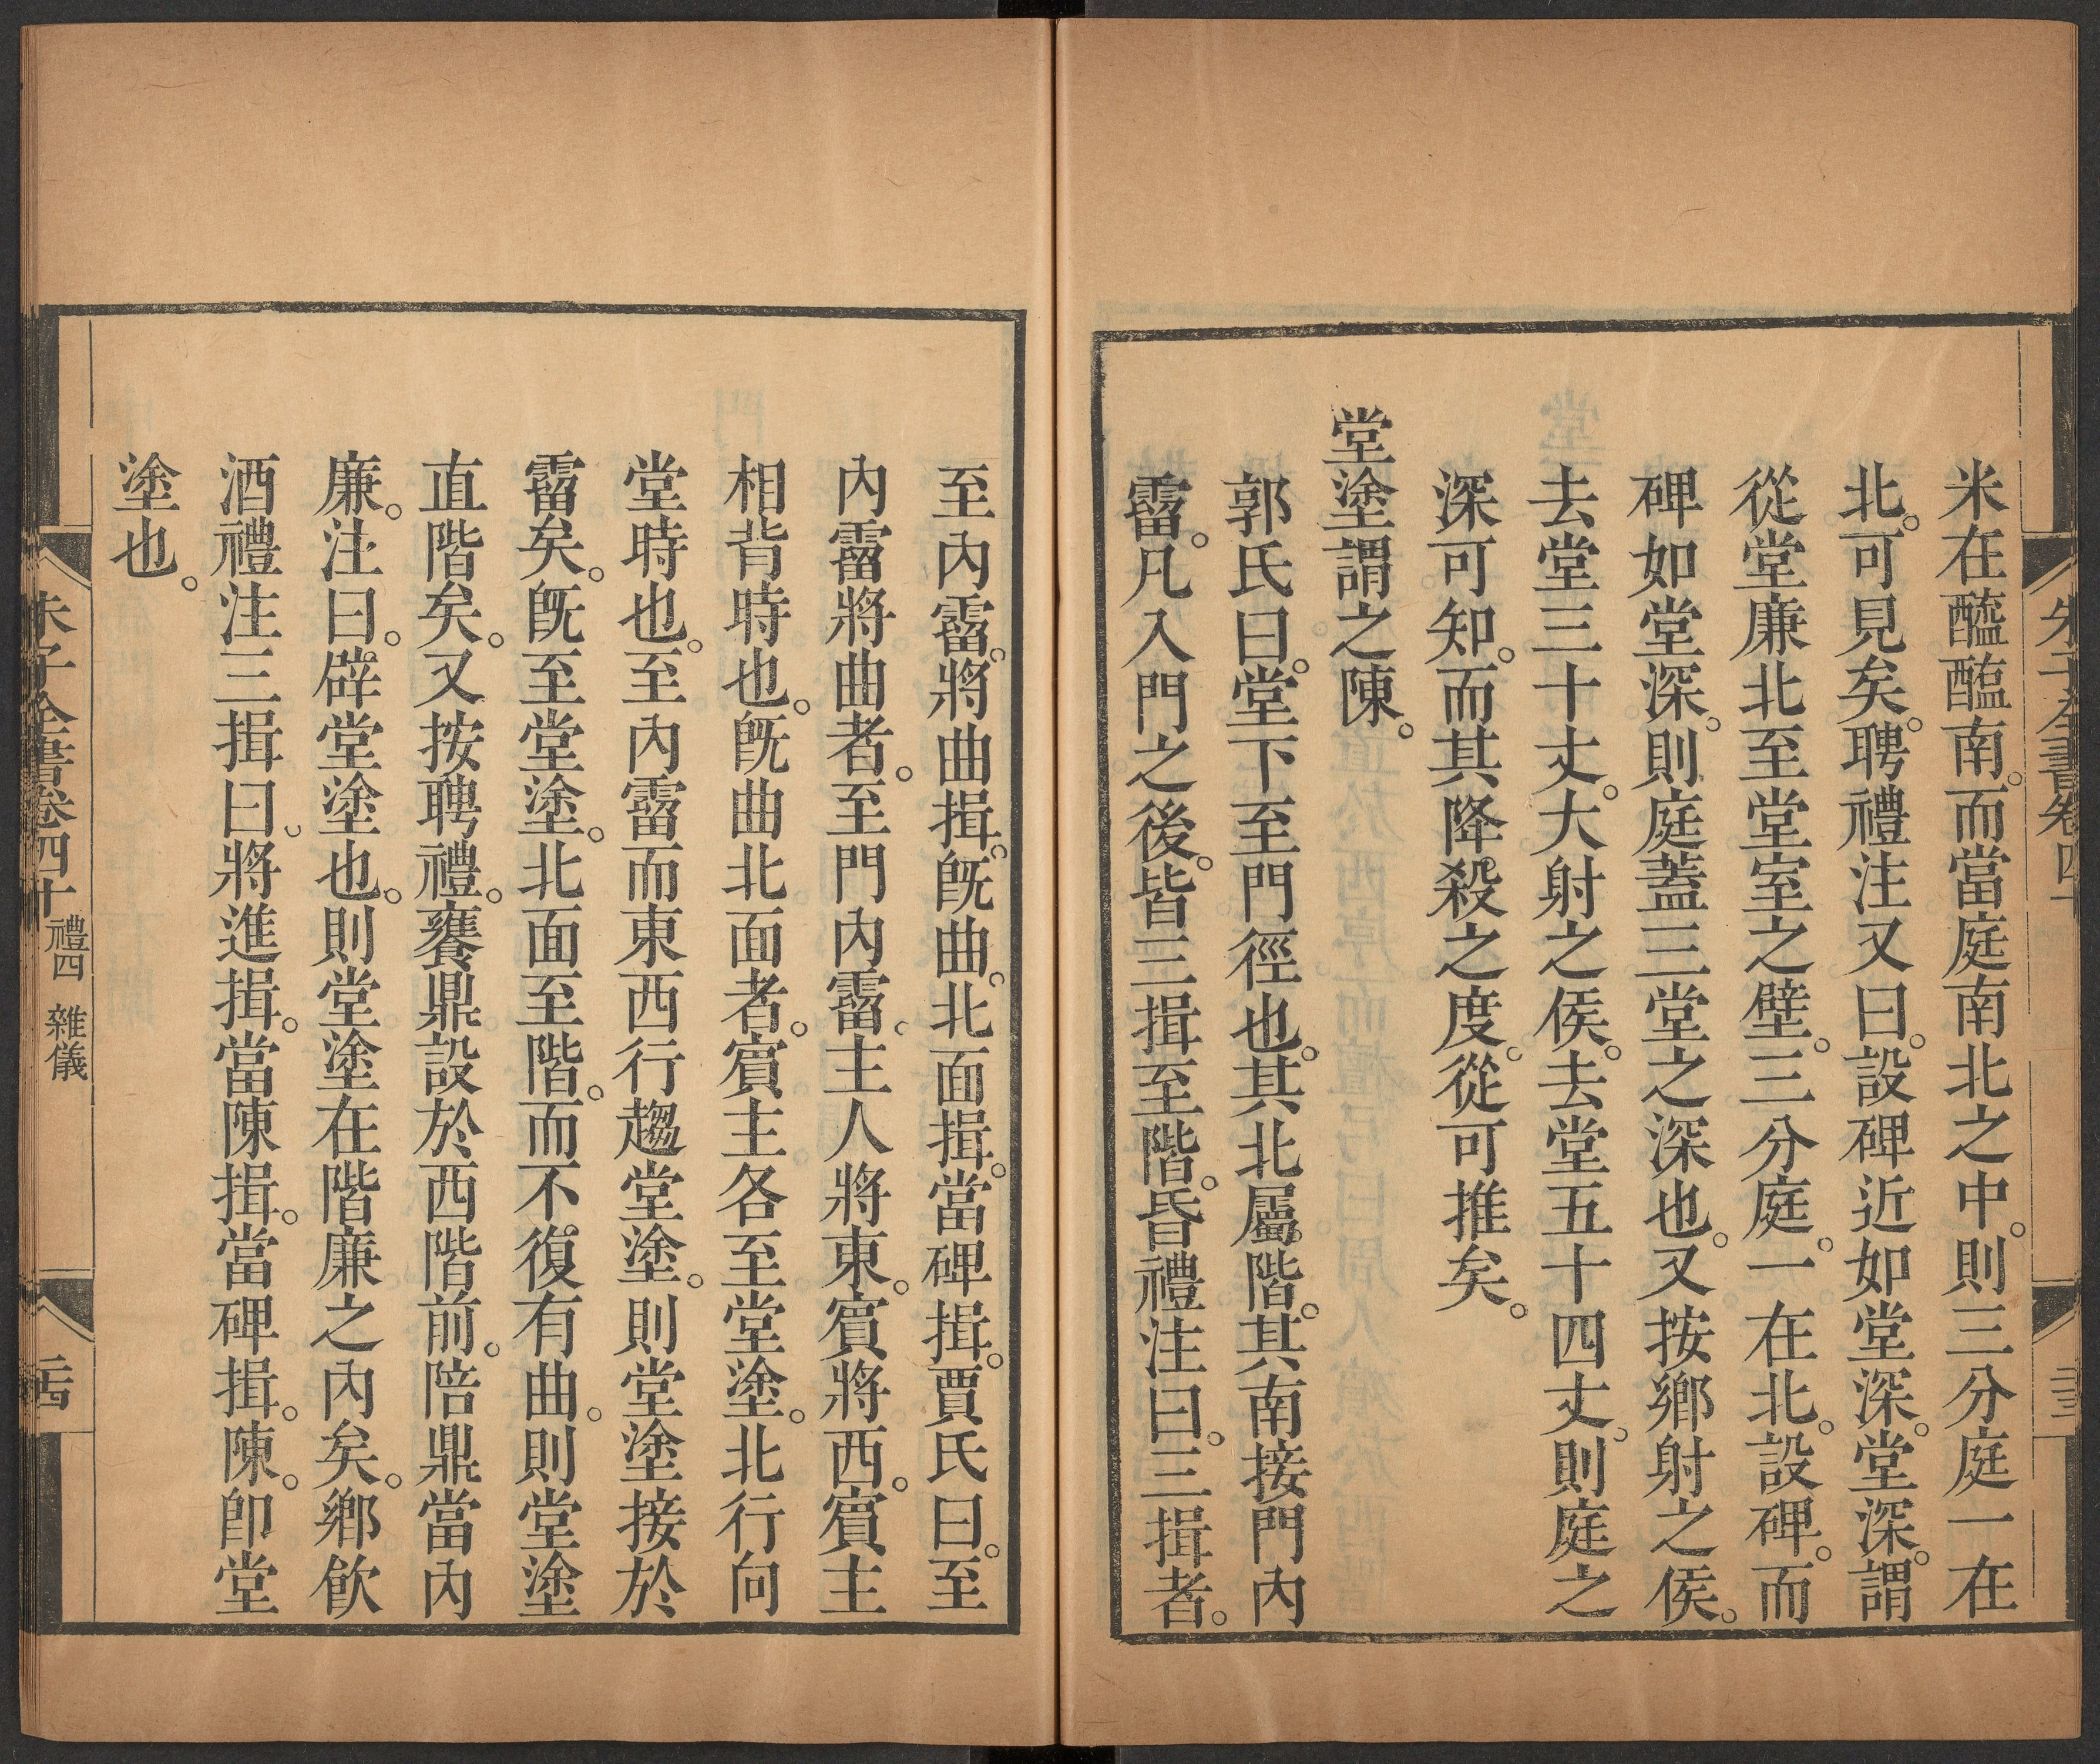 米在醯醢南。而當庭南北之中。則三分庭一在
北。可見矣。聘禮注又曰。設碑近如堂深。堂深。謂
從堂廉北至堂室之壁。三分庭。一在北。設碑。而
碑如堂深。則庭蓋三堂之深也。又按鄉射之侯。
去堂三十丈。大射之侯。去堂五十四丈。則庭之
深可知。而其降殺之度。從可推矣。
堂塗謂之陳。
郭氏曰。堂下至門徑也。其北屬階。其南接門內
霤。凡入門之後。皆三揖至階。昏禮注曰。三揖者。
朱子全書卷四十
至內霤。將曲揖。旣曲。北面揖。當碑揖。賈氏曰。至
內霤將曲者。至門內霤。主人將東。賓將西。賓主
相背時也。旣曲北面者。賓主各至堂塗。北行向
堂時也。至內霤而東西行趨堂塗。則堂塗接於
霤矣。旣至堂塗。北面至階。而不復有曲。則堂塗
直階矣。又按聘禮。饔鼎設於西階前。陪鼎當內
廉。注曰。辟堂塗也。則堂塗在階廉之內矣。鄉飮
酒禮注三揖曰。將進揖。當陳揖。當碑揖。陳。卽堂
塗也。
朱子全書卷四十 禮四 雜儀